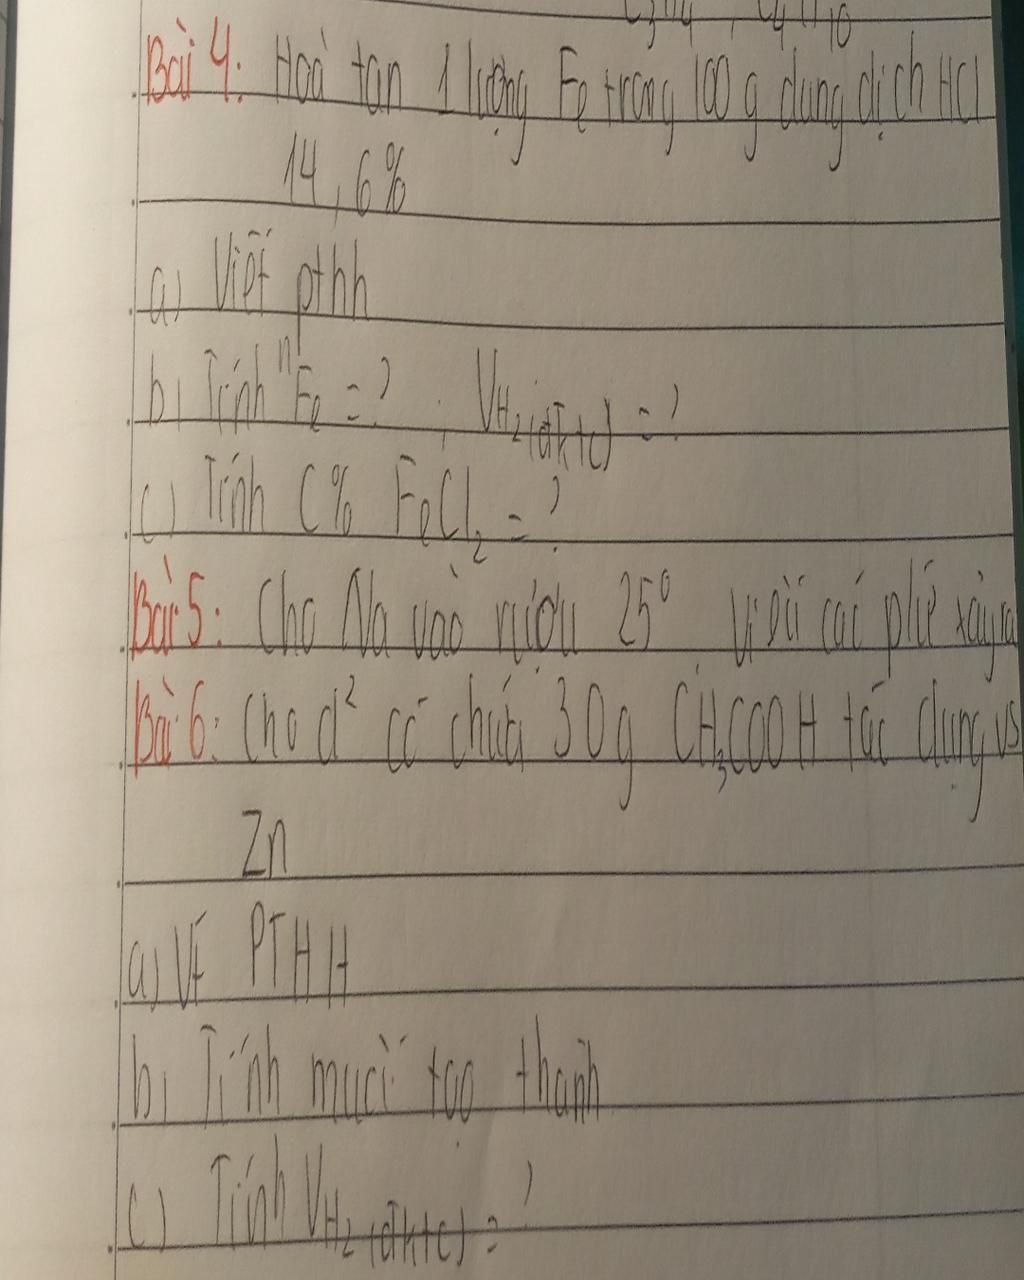 C3H4, C4H10
Bài 4: Hoà tan 1 lượng Fe trong 100 g dung dịch HCl
14,6%
a) Viết pthh
b) Tính nFe = ? ; VH2(đktc) = ?
c) Tính C% FeCl2 = ?
Bài 5: Cho Na vào rượu 25° Viết các ptư xảy ra
Bài 6: Cho d² có chứa 30g CH3COOH tác dụng vs
Zn
a) Vt PTHH
b) Tính muối tạo thành
c) Tính VH2 (đktc) = ?